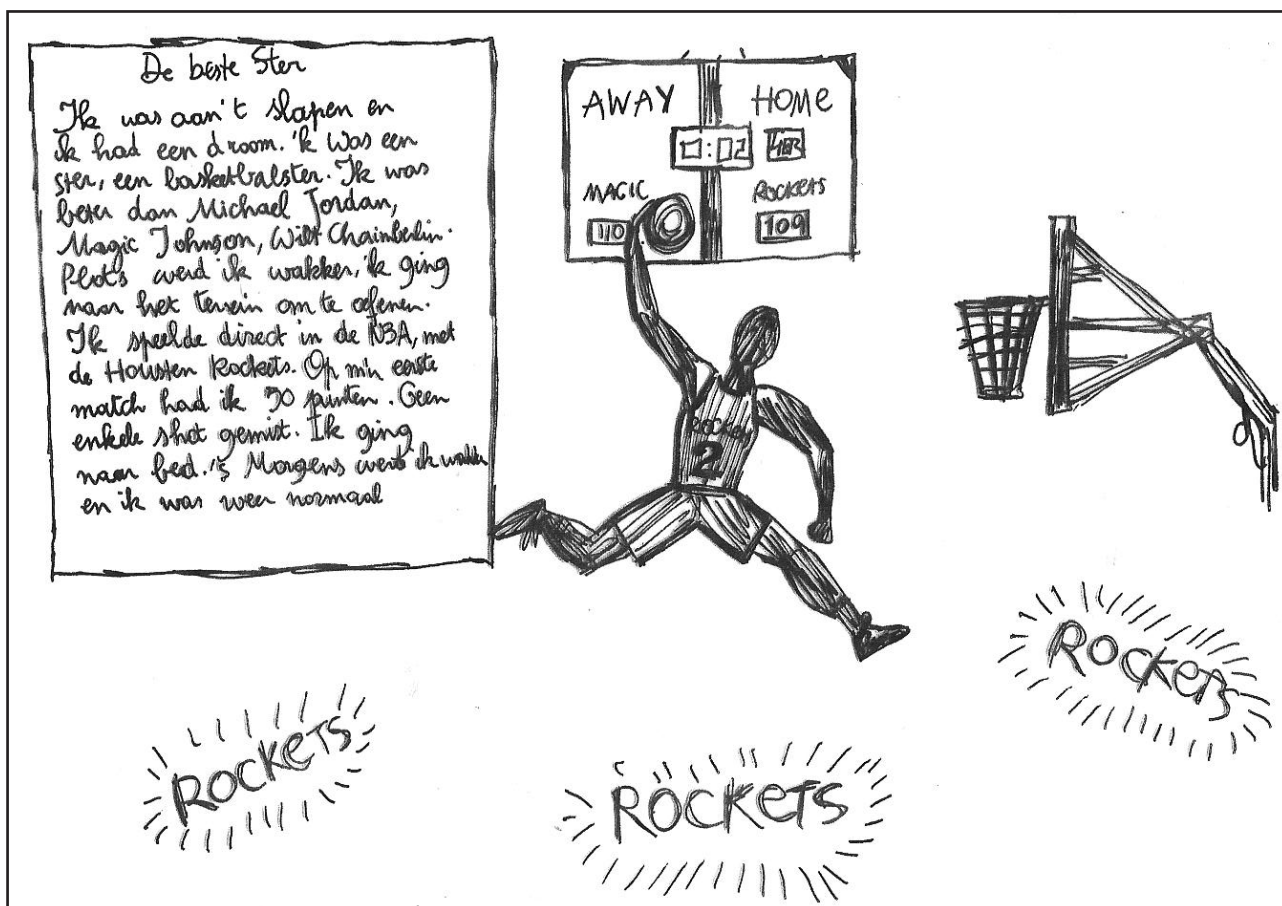 De beste Ster
Ik was aan't slapen en
ik had een droom. 'k Was een
ster, een basketbalster. Ik was
beter dan Michael Jordan,
Magic Johnson, Wilt Chaimberlin.
Plots werd ik wakker, ik ging
naar het terrein om te oefenen.
Ik speelde direct in de NBA, met
de Housten Rockets. Op m'n eerste
match had ik 50 punten. Geen
enkele shot gemist. Ik ging
naar bed. 's Morgens werd ik wakker
en ik was weer normaal
AWAY HOME
0:02
MAGIC ROCKETS
110 109
2
ROCKETS
ROCKETS
ROCKETS